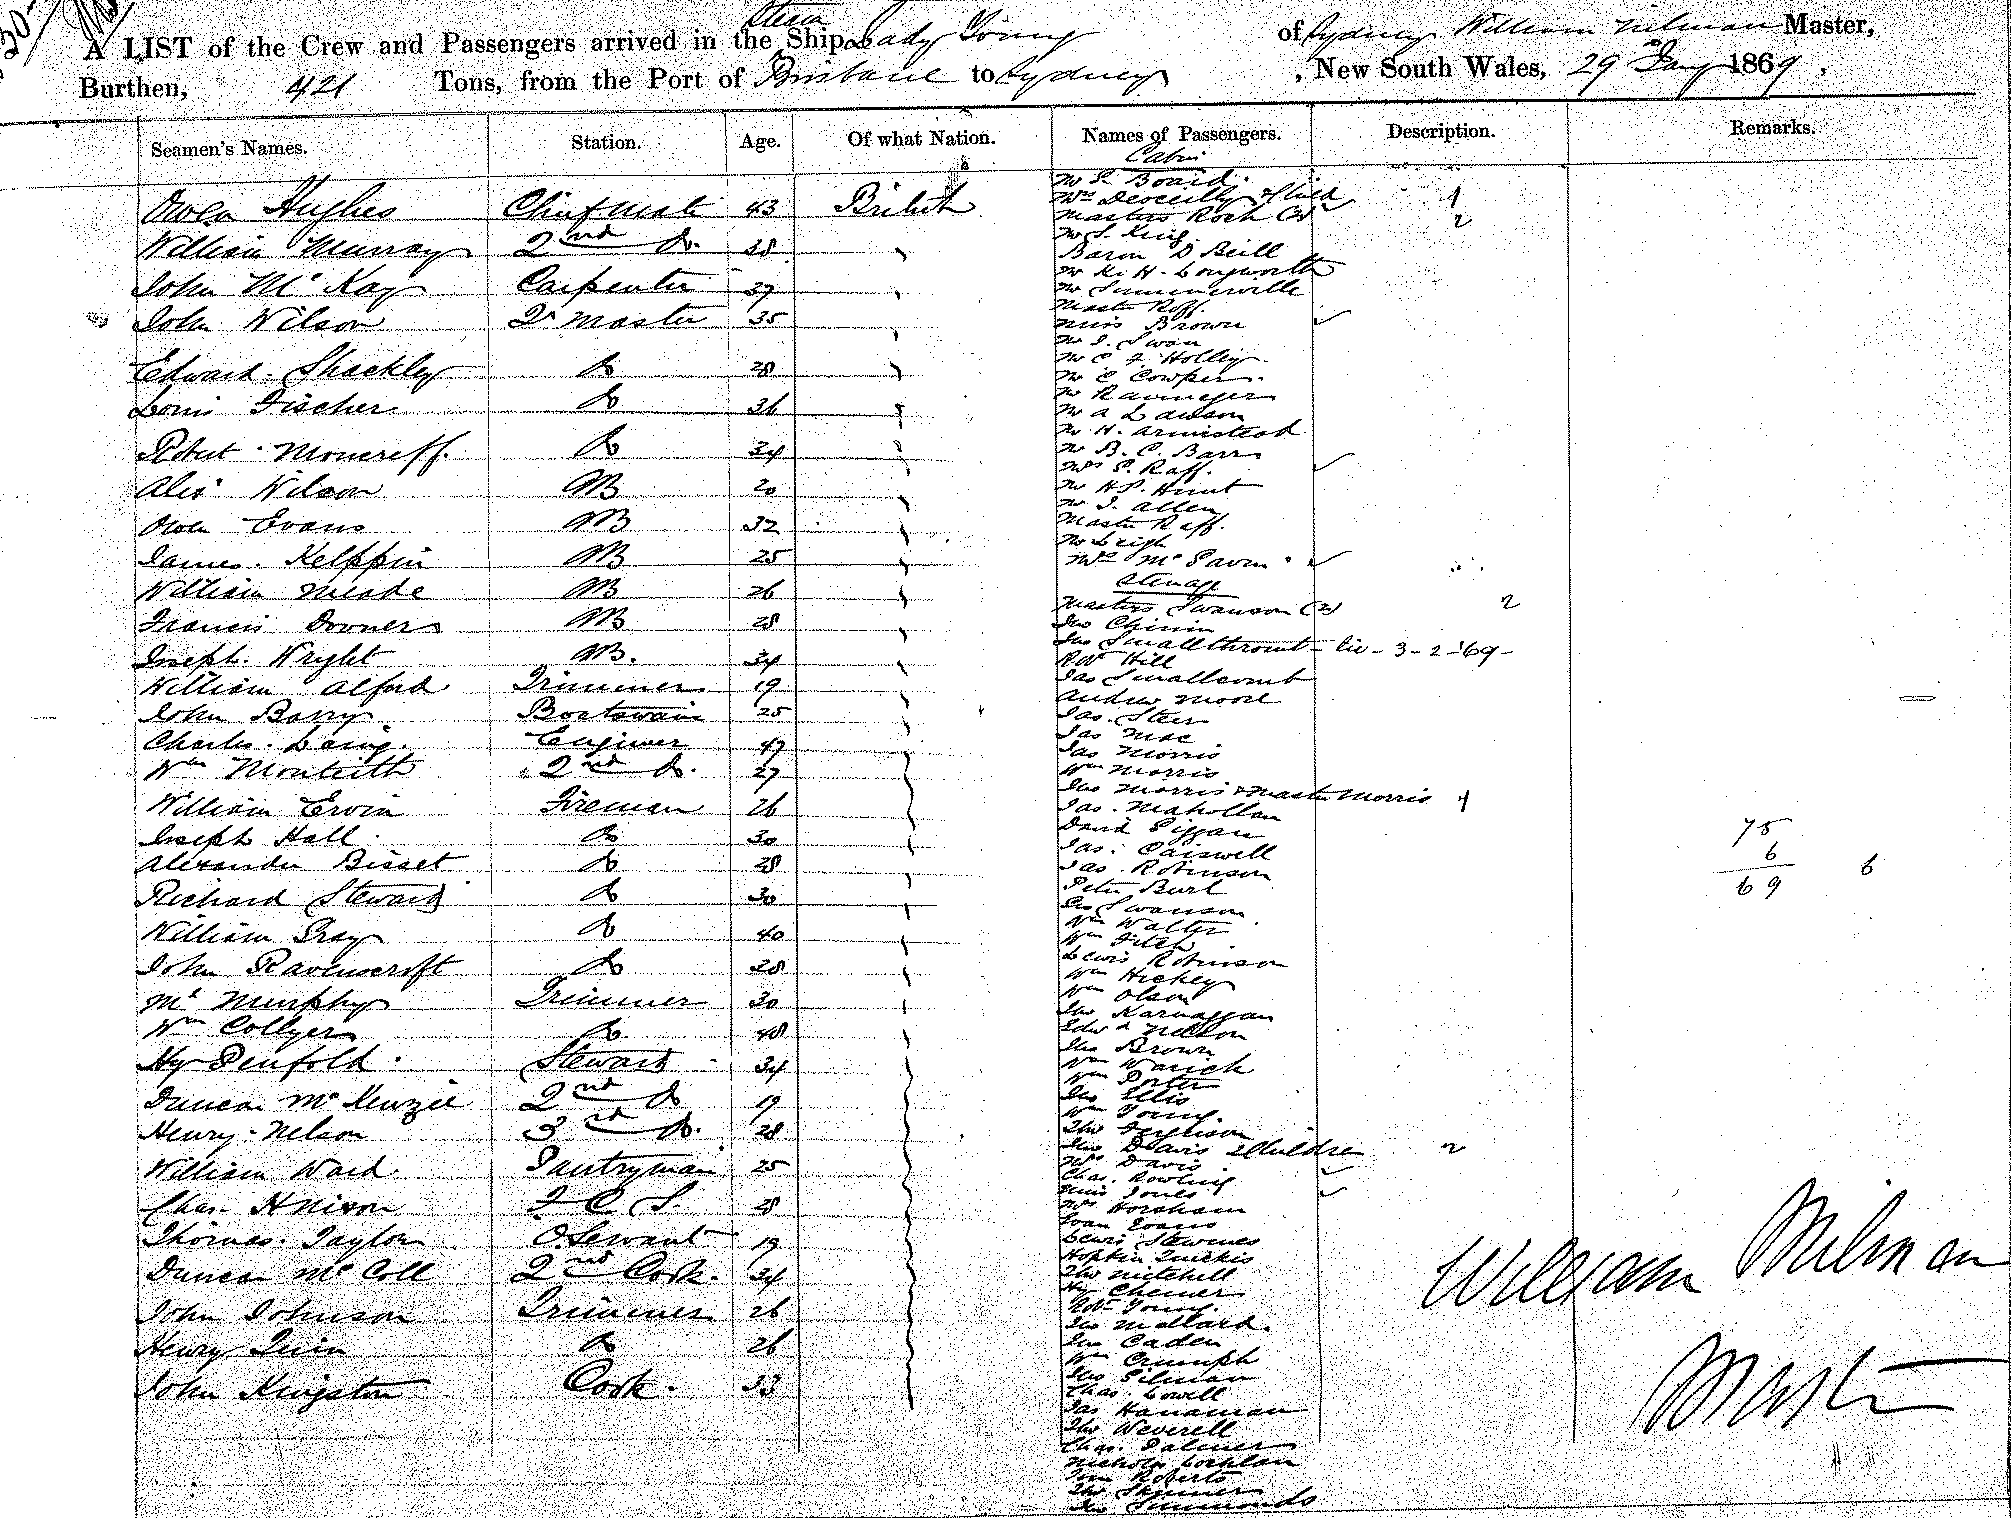 30/-
A LIST of the Crew and Passengers arrived in the Steam Ship Lady Young of Sydney William Milman Master,
Burthen, 421 Tons, from the Port of Brisbane to Sydney, New South Wales, 29 Jany 1869,
Seamen's Names. Station. Age. Of what Nation. Names of Passengers. Description. Remarks.
Owen Hughes Chief mate 43 British
William Murray 2nd Do. 38
John McKay Carpenter 37
John Wilson Qr master 35
Edward Shackley Do 28
Louis Fischer Do 36
Robert Moncreff Do 34
Alexr Wilson AB 20
Owen Evans AB 32
James Kelppin AB 25
William Meade AB 26
Francis Downers AB 28
Joseph Wright AB. 34
William Alford Trimmer 19
John Barry Boatswain 25
Charles Laing Engineer 47
Wm Monteith 2nd Do. 27
William Ervin Fireman 26
Joseph Hall Do 30
Alexander Bisset Do 28
Richard Steward Do 30
William Gray Do 40
John Ravenscroft Do 28
Ml Murphy Trimmer 30
Wm Collyer Do. 48
Hy Penfold Steward 34
Duncan McKenzie 2nd Do 19
Henry Nelson 3rd Do. 28
William Ward Pantryman 25
Chas. H Nixon F C S. 28
Thomas Taylor O. Servant 19
Duncan McColl 2nd Cook. 34
John Johnson Trimmer 26
Henry Quin Do 26
John Kingston Cook. 33
Cabin
Mr S. Board
Mrs & Child 1
Masters Rock (2) 2
Mr S. King
Baron D Beill
Mr H. Longworth
Mr Summerville
Master Raff.
Miss Brown
Mr J. Swan
Mr C F Holley
Mr C Cowper.
Mr Ravmeyer
Mr A Lawson
Mr H. Armistead
Mr B. C. Barrs
Mrs S. Raff.
Mr H P. Hunt
Mr J. Allen
Master Raff.
Mr Leigh
Mrs McGavin
Steerage
Masters Swanson (2) 2
Jno Chinin
Jno Smallthromt - lic - 3-2-'69-
Robt Hill
Jas Smallcomb
Andrew Moore
Jas. Steer
Jas Mac
Jas Morris
Wm Morris
Jno Morris & Master Morris 1
Jas. Mahollan
David Piggan
Jas. Carswell
Jas. Robinson
Peter Burt
Jno Swanson
Wm Walter
Wm Fitch
Lewis Robinson
Wm Hickey
Wm Olson
Jno Karnaggan
Edwd Nelson
Jno Brown
Wm Warick
Wm Porter
Jno Ellis
Wm Young.
Thos Ferguson
Jno Davis 2 Children 2
Mrs Davis
Chas. Rowling
Miss Jones
Mrs Horsham
Evan Evans
Lewis Stevenes
Hopkin Jenkis
Thos Mitchell
Hy Chemer
Robt Young.
Jno Mallard.
Jno Caden
Wm Crumph
Jno Gilman
Chas. Lowell
Jas Hanaman
Thos Weverell
Chas. Palmer
Nicholas Lochlan
Tom Roberts
Thos Skinner
Jno Simmonds
75
6
69 6
William Milman
Master